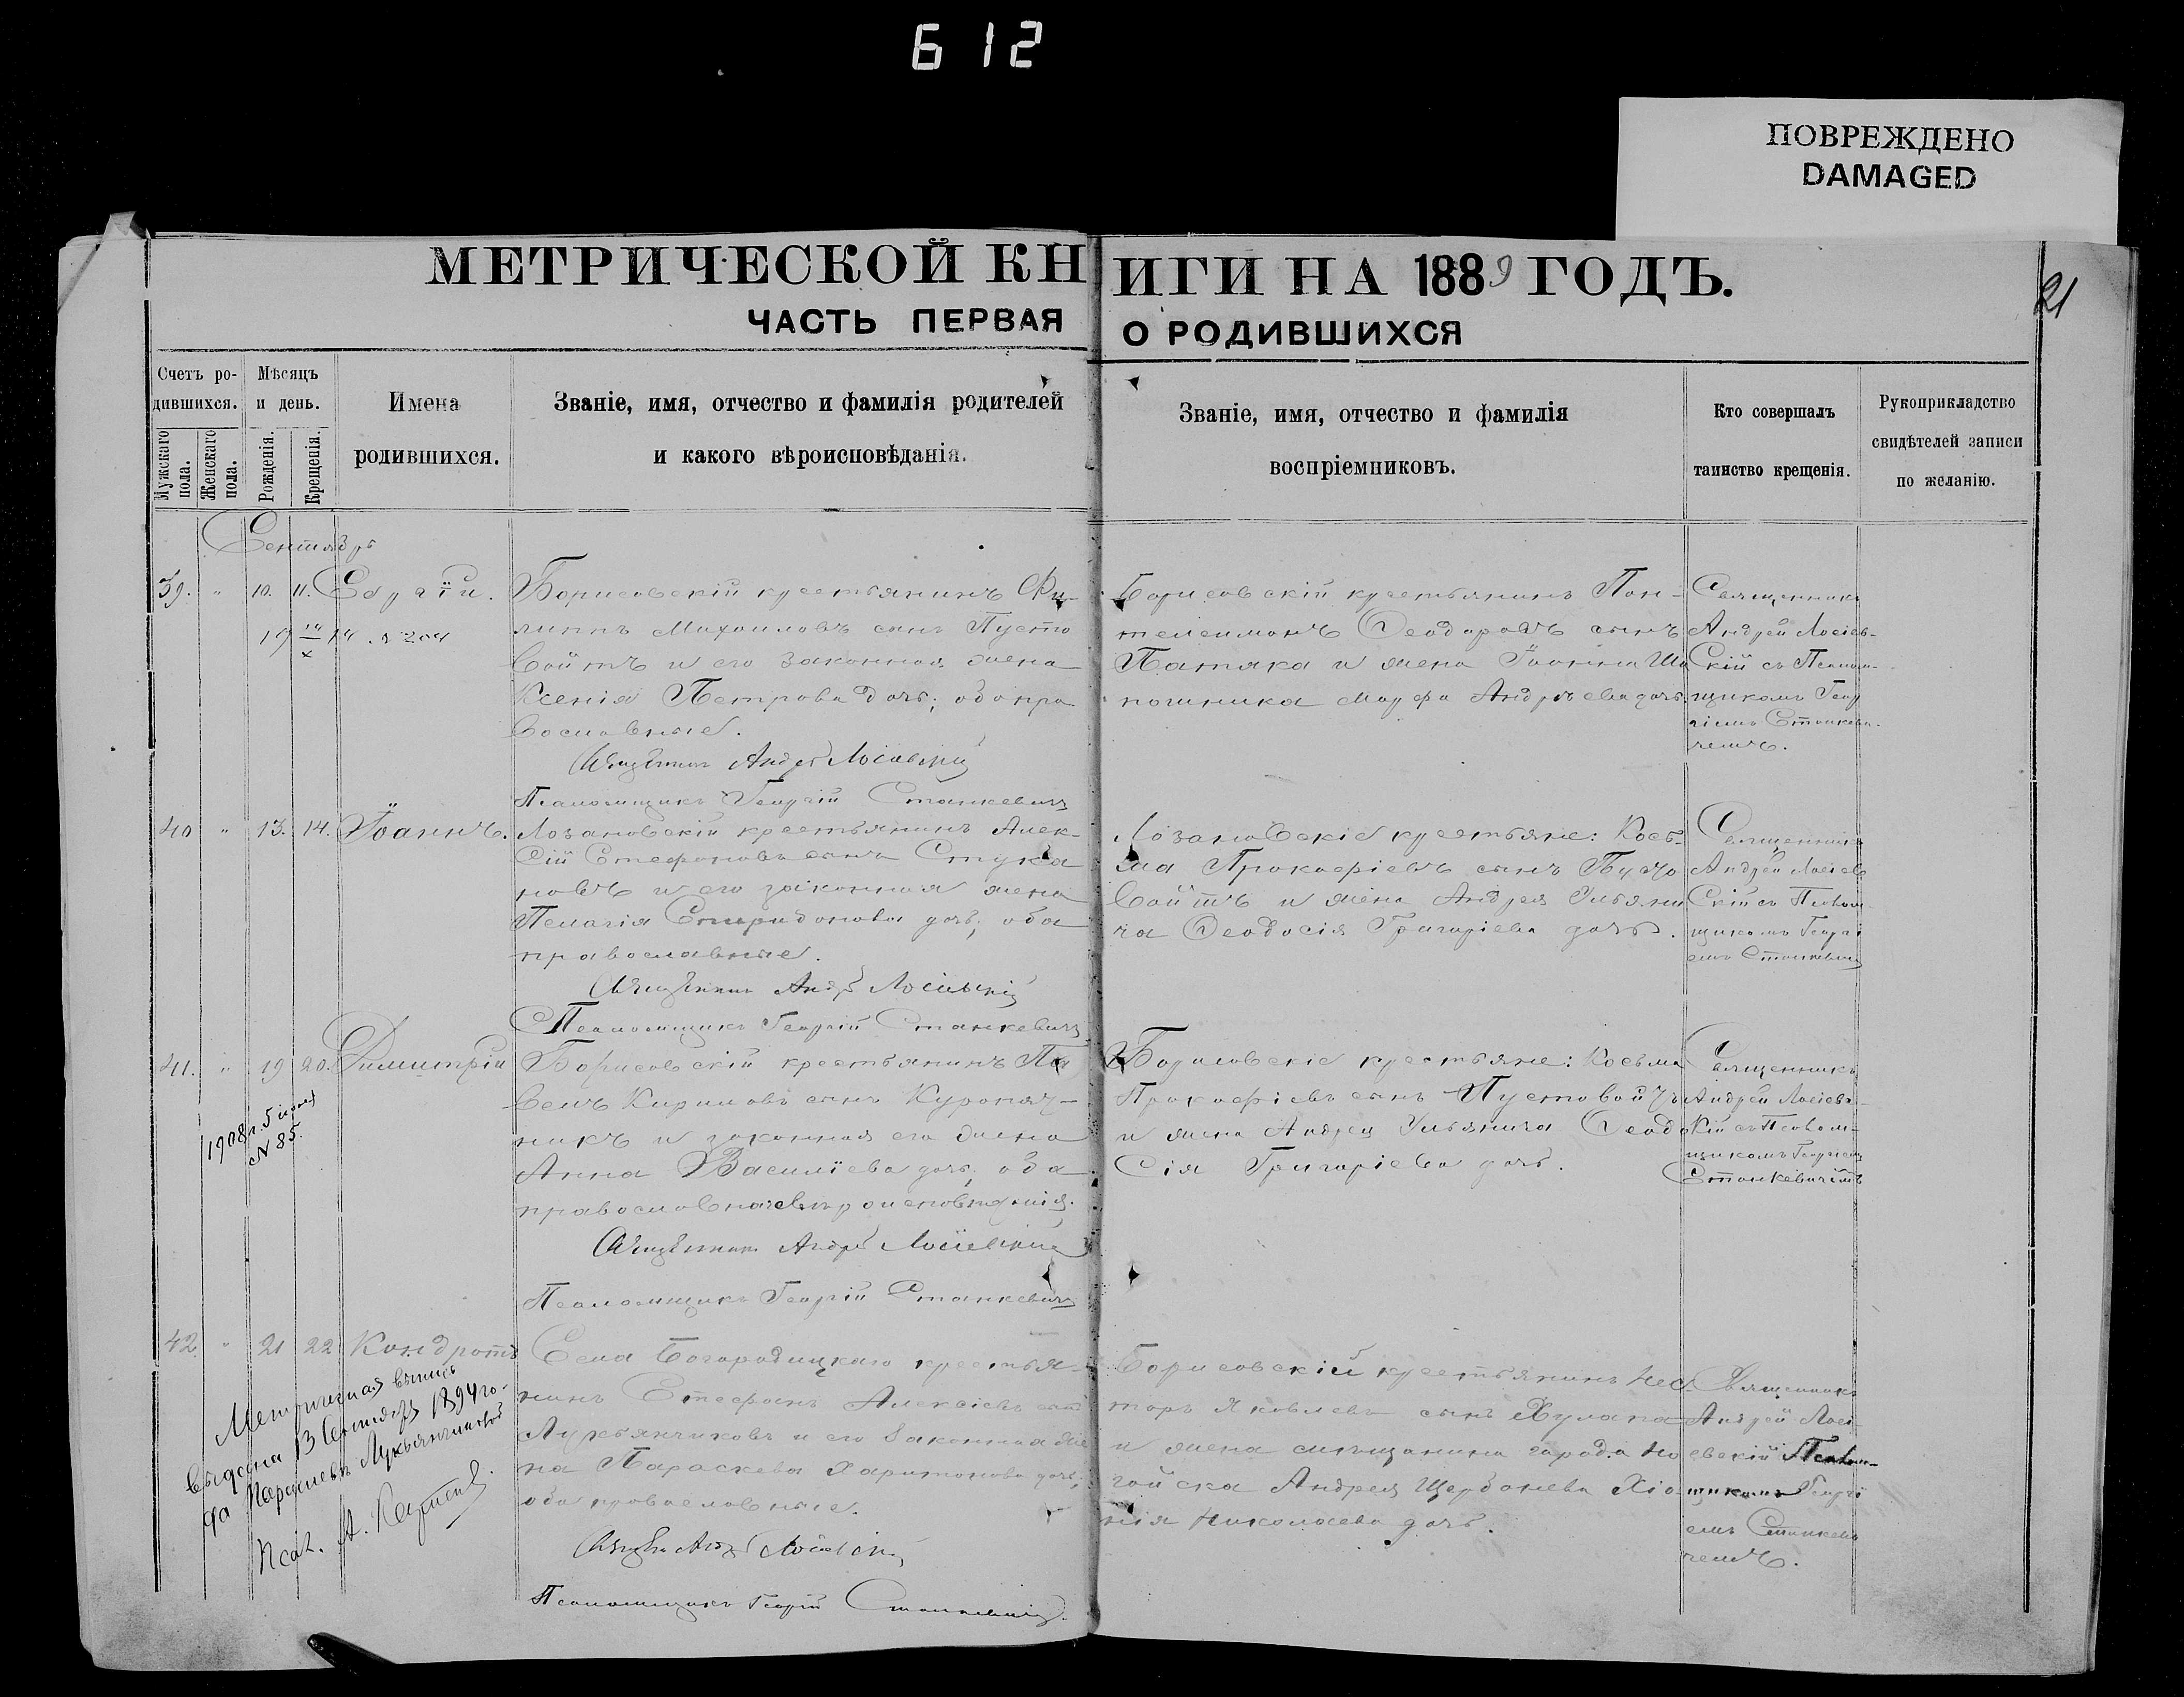 612
ПОВРЕЖДЕНО
DAMAGED
МЕТРИЧЕСКОЙ КНИГИ НА 1889 ГОДЪ.
21
ЧАСТЬ ПЕРВАЯ О РОДИВШИХСЯ
Счетъ родившихся.
Мужскаго пола.
Женскаго пола.
Мѣсяцъ и день.
Рожденія.
Крещенія.
Имена
родившихся.
Званіе, имя, отчество и фамилія родителей
и какого вѣроисповѣданія.
Званіе, имя, отчество и фамилія
воспріемниковъ.
Кто совершалъ
таинство крещенія.
Рукоприкладство
свидѣтелей записи
по желанію.
Сентябрь
39. " 10. 11.
19 14/x 14 №204
Борисовскій крестьянинъ Фи-
липпъ Михоиловъ сынъ Пусто
войтъ и его законная жена
Ксенія Петрова дочь; оба пра
вославные.
Священникъ Андрей Лосіевскій
Псаломщикъ Георгій Станкевичъ
Борисовскій крестьянинъ Пан-
телеимонъ Ѳеодоровъ сынъ
Патяка и жена Іоанна Ша
пошника Марфа Андреева дочь.
Священникъ
Андрей Лосіев-
скій съ Псалом-
щикомъ Геор
гіемъ Станкеви-
чемъ.
40 " 13. 14. Іоаннъ.
Лозановскій крестьянинъ Алек-
сій Стефановъ сынъ Стука
новъ и его законная жена
Пелагія Спиридонова дочь; оба
православные.
Священникъ Андрей Лосіевскій
Псаломщикъ Георгій Станкевичъ
Лозановскіе крестьяне: Кось-
ма Прокофіевъ сынъ
войтъ и жена Андрея Ульяни
ча Ѳеодосія Григоріева дочь.
Священникъ
Андрей Лосіев
скій съ Псалом-
щикомъ Георгі
емъ
41. " 19 20. Димитрій
1908 г. 5 іюня
№85.
Борисовскій крестьянинъ Па
велъ Кириловъ сынъ Куропят-
никъ и законная его жена
Анна Василіева дочь, оба
Священникъ Андрей Лосіевскій
Псаломщикъ Георгій Станкевичъ
Борисовскіе крестьяне: Косьма
Прокофіевъ сынъ Пустовойтъ
и жена Андрея Ульянича Ѳеодо
сія Григоріева дочь.
Священникъ
Андрей Лосіевс-
кій съ Псалом-
щикомъ Георгіемъ
Станкевичемъ
42. " 21 22 Кондратъ
Метричная выпись
выдана 13 Сентября 1894 го-
да Лукьянчиковой
Псал. А.
Села Богородицкаго крестья-
нинъ Стефанъ Алексіевъ сынъ
Лукьянчиковъ и его законная же
на Параскева Харитонова дочь;
оба православные.
Священникъ Андрей Лосіевскій
Псаломщикъ Георгій Станкевичъ.
Борисовскій крестьянинъ Нес-
торъ Яковлевъ сынъ
и жена мѣщанина города Но
гайска Андрея Щербонева Хіо-
нія Николаева дочь.
Священникъ
Андрей Лосі-
евскій Псалом-
щикомъ Георгі
емъ Станкеви
чемъ.